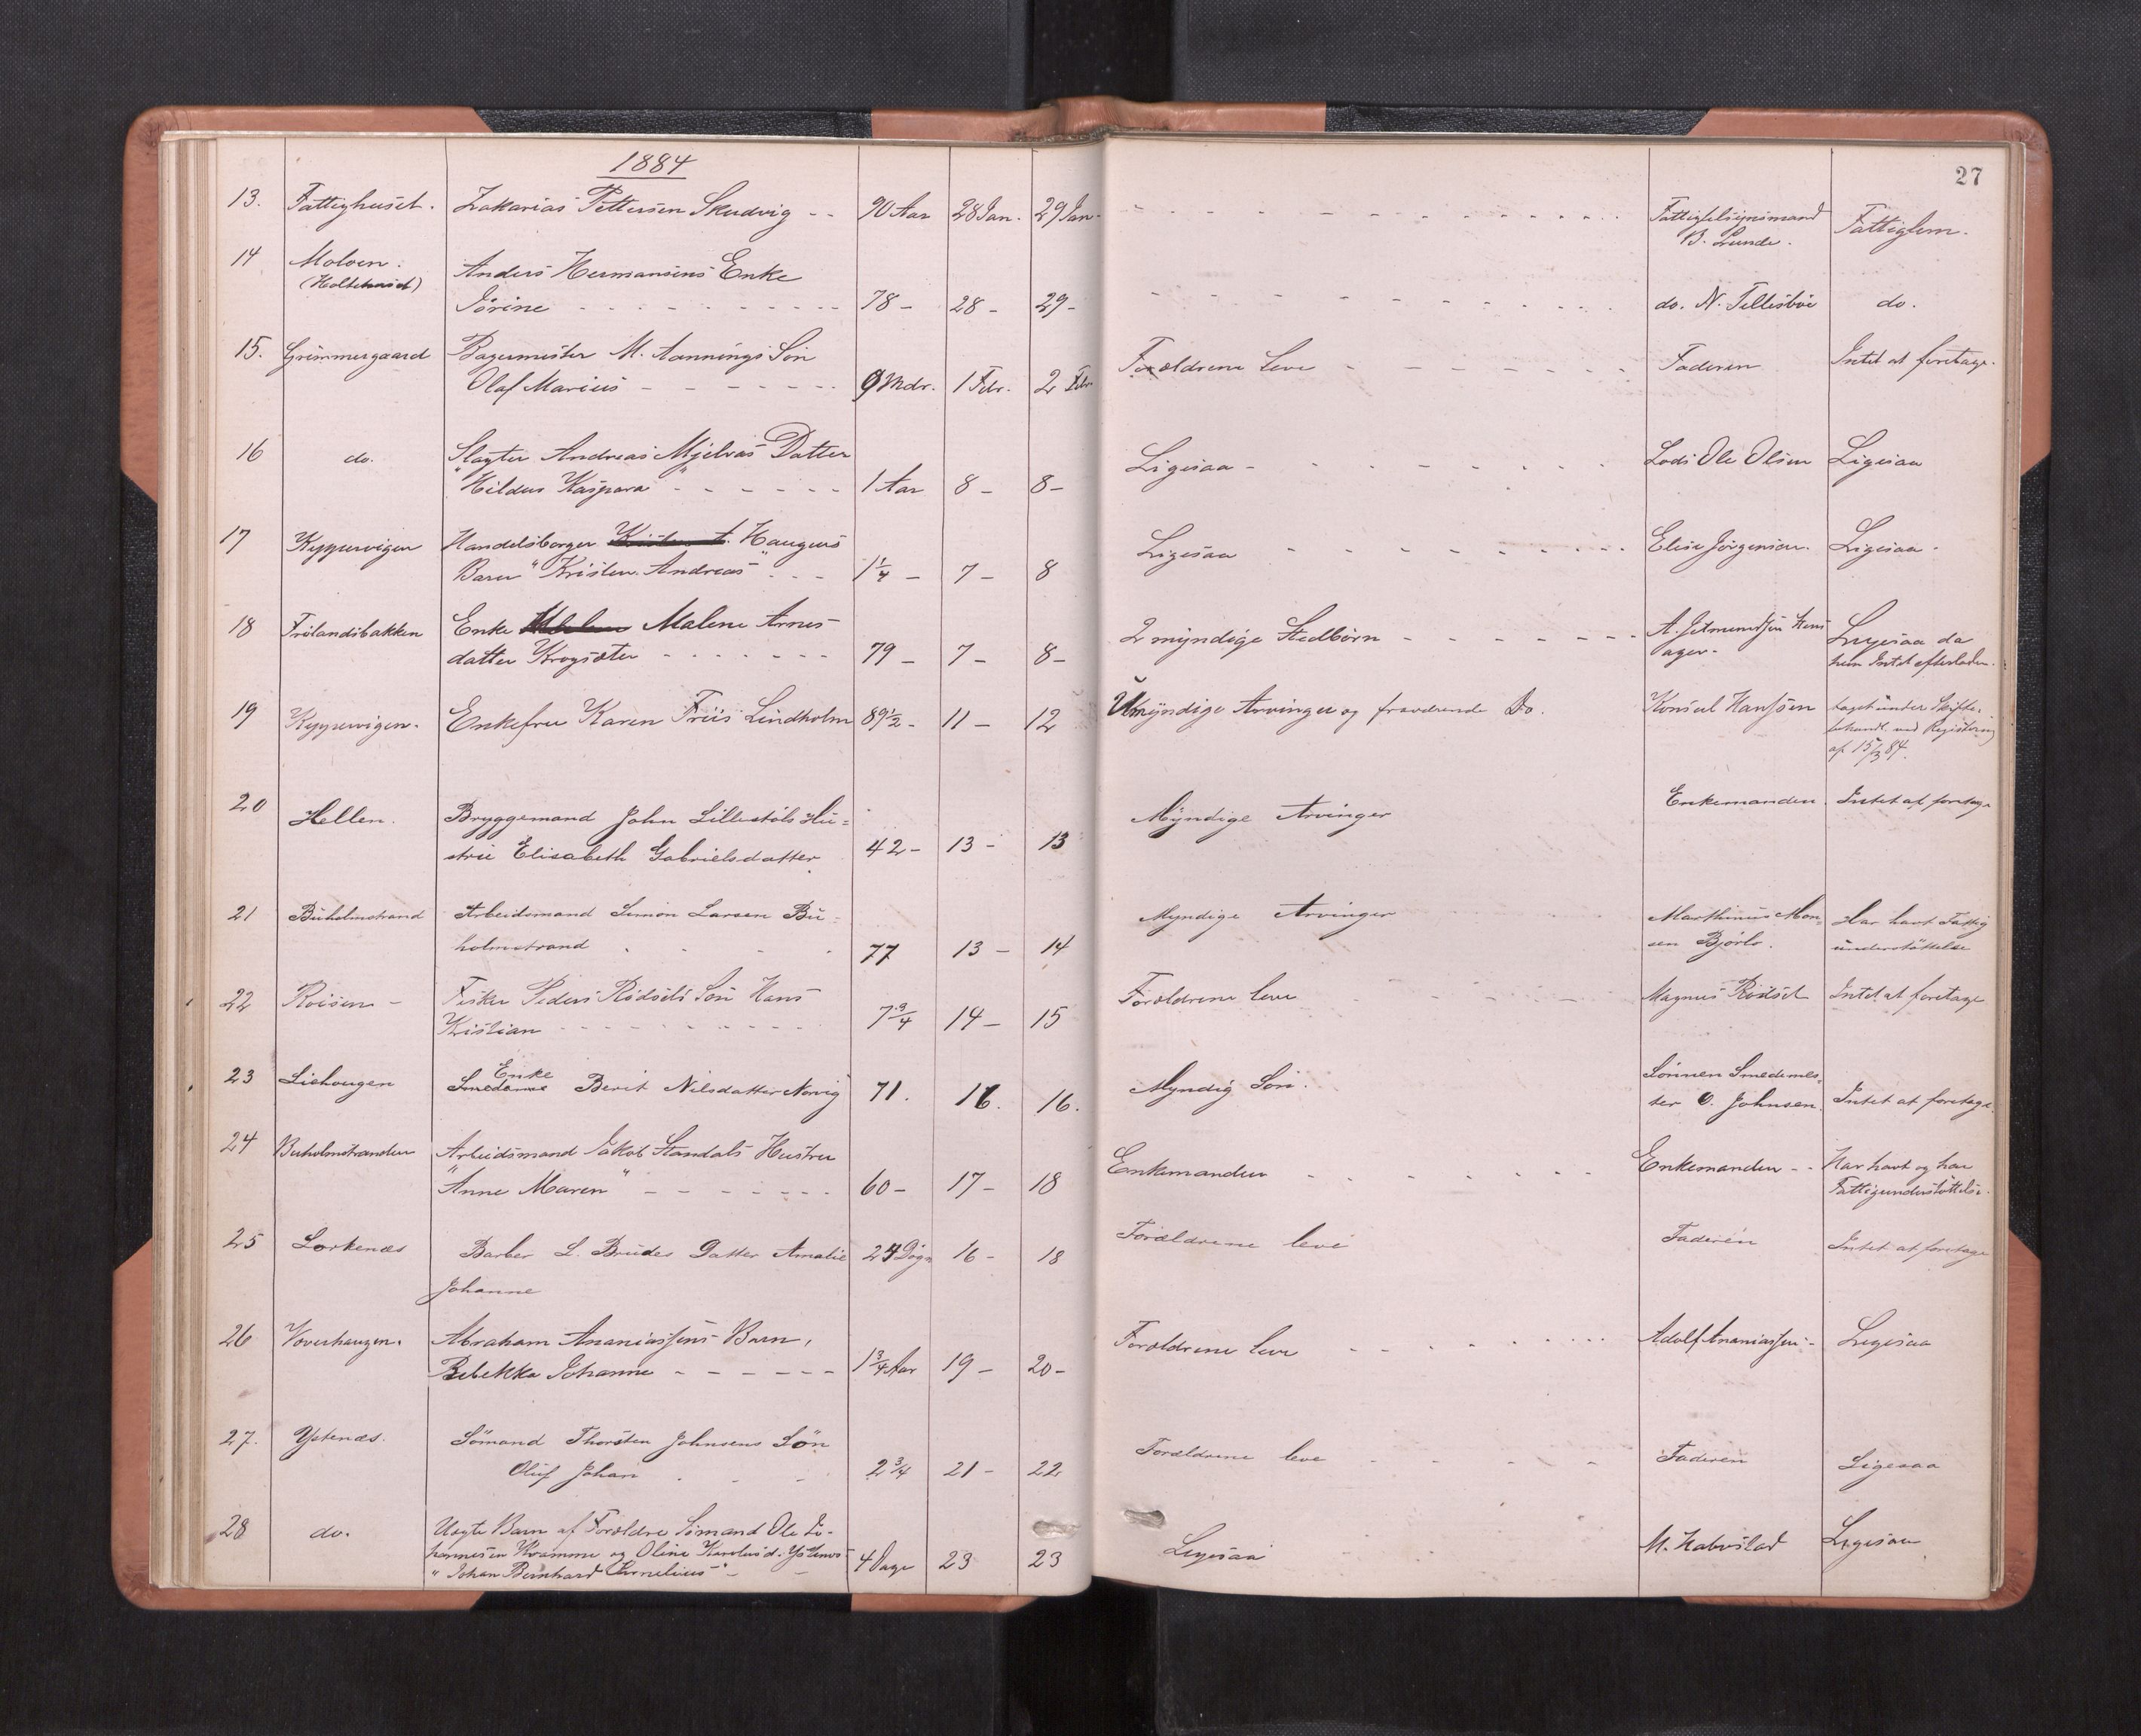 1884
27
13. Fattighuset. Zakarias Pettersen Skudvig - - 90 Aar 28 Jan. 29 Jan. Fattigtilsynsmand Fattiglem.
B. Lunde.
14 Moloen. Anders Hermansens Enke
(Holtehuset)
Sørine 78 - 28 - 29 - do. N. Tellisbøe do.
15. Grimmergaard Bagermester M. Aannings Søn Forældrene leve Faderen Intet at foretage.
Olaf Marius 9 Mdr. 1 Febr. 2 Febr
16 do. Slagter Andreas Mjelvas Datter Ligesaa - Lods Ole Olsen Ligesaa
"Hildur Kaspara" 1 Aar 8 - 8 -
17 Kyppervigen Handelsborger Haugens Ligesaa Elise Jørgensen. Ligesaa.
Barn "Kristen Andreas" 1 1/4 - 7 - 8
18 Frølandsbakken Enke Malene Arnes- 2 myndige Stedbørn Ligesaa da
datter Krogsæter 79 - 7 - 8 - ager. hun Intet efterlader.
19 Kyppervigen. Enkefru Karen Friis Lindholm 89 1/2 - 11 - 12 Umyndige Arvinger og fraværende Do. Konsul Hanssen taget under Skifte-
behandl. ved Registrering
af 15/3 84.
20 Hellen. Bryggemand John Lillestøls Hu= Myndige Arvinger Enkemanden. Intet at foretage
stru Elisabeth Gabrielsdatter. 42 - 13 - 13
21 Buholmstrand Arbeidsmand Simon Larsen Bu- Myndige Arvinger Marthinus Mon- Har havt Fattig
holmstrand 77 13 - 14 sen Bjørlo. understøttelse
22 Roisen - Fisker Peders Rødsets Søn Hans Forældrene leve Magnus Rødset Intet at foretage
Kristian 7 3/4 14 - 15
23 Liehougen Enke Berit Nilsdatter Norvig 71. 16. 16. Myndig Søn. Sønnen Smedemes=
ter O. Johnsen. Intet at foretage.
24 Buholmstranden Arbeidsmand Jakob Standals Hustru Enkemanden Enkemanden - - Har havt og har
"Anne Maren" 60 - 17 - 18 Fattigunderstøttelse.
25 Lorkenæs Barber L. Brudes Datter Amalie 24 Døgn 16 - 18 Forældrene leve Faderen Intet at foretage
Johanne
26 Voverhaugen. Abraham Ananiassens Barn, Forældrene leve Adolf Ananiassen - Ligesaa
Rebekka Johanne 1 3/4 Aar 19 - 20 -
27. Ystenæs. Sömand Thorsten Johnsens Sön Forældrene leve Faderen Ligesaa
Oluf Johan 2 3/4 21 - 22
28 do. Uægte Barn af Forældre Sømand Ole Jo- Ligesaa Ligesaa
hannesen Kramme og Oline Karolusd. Ystenæs
"Johan Bernhard Kornelius" 4 Dage 23 23